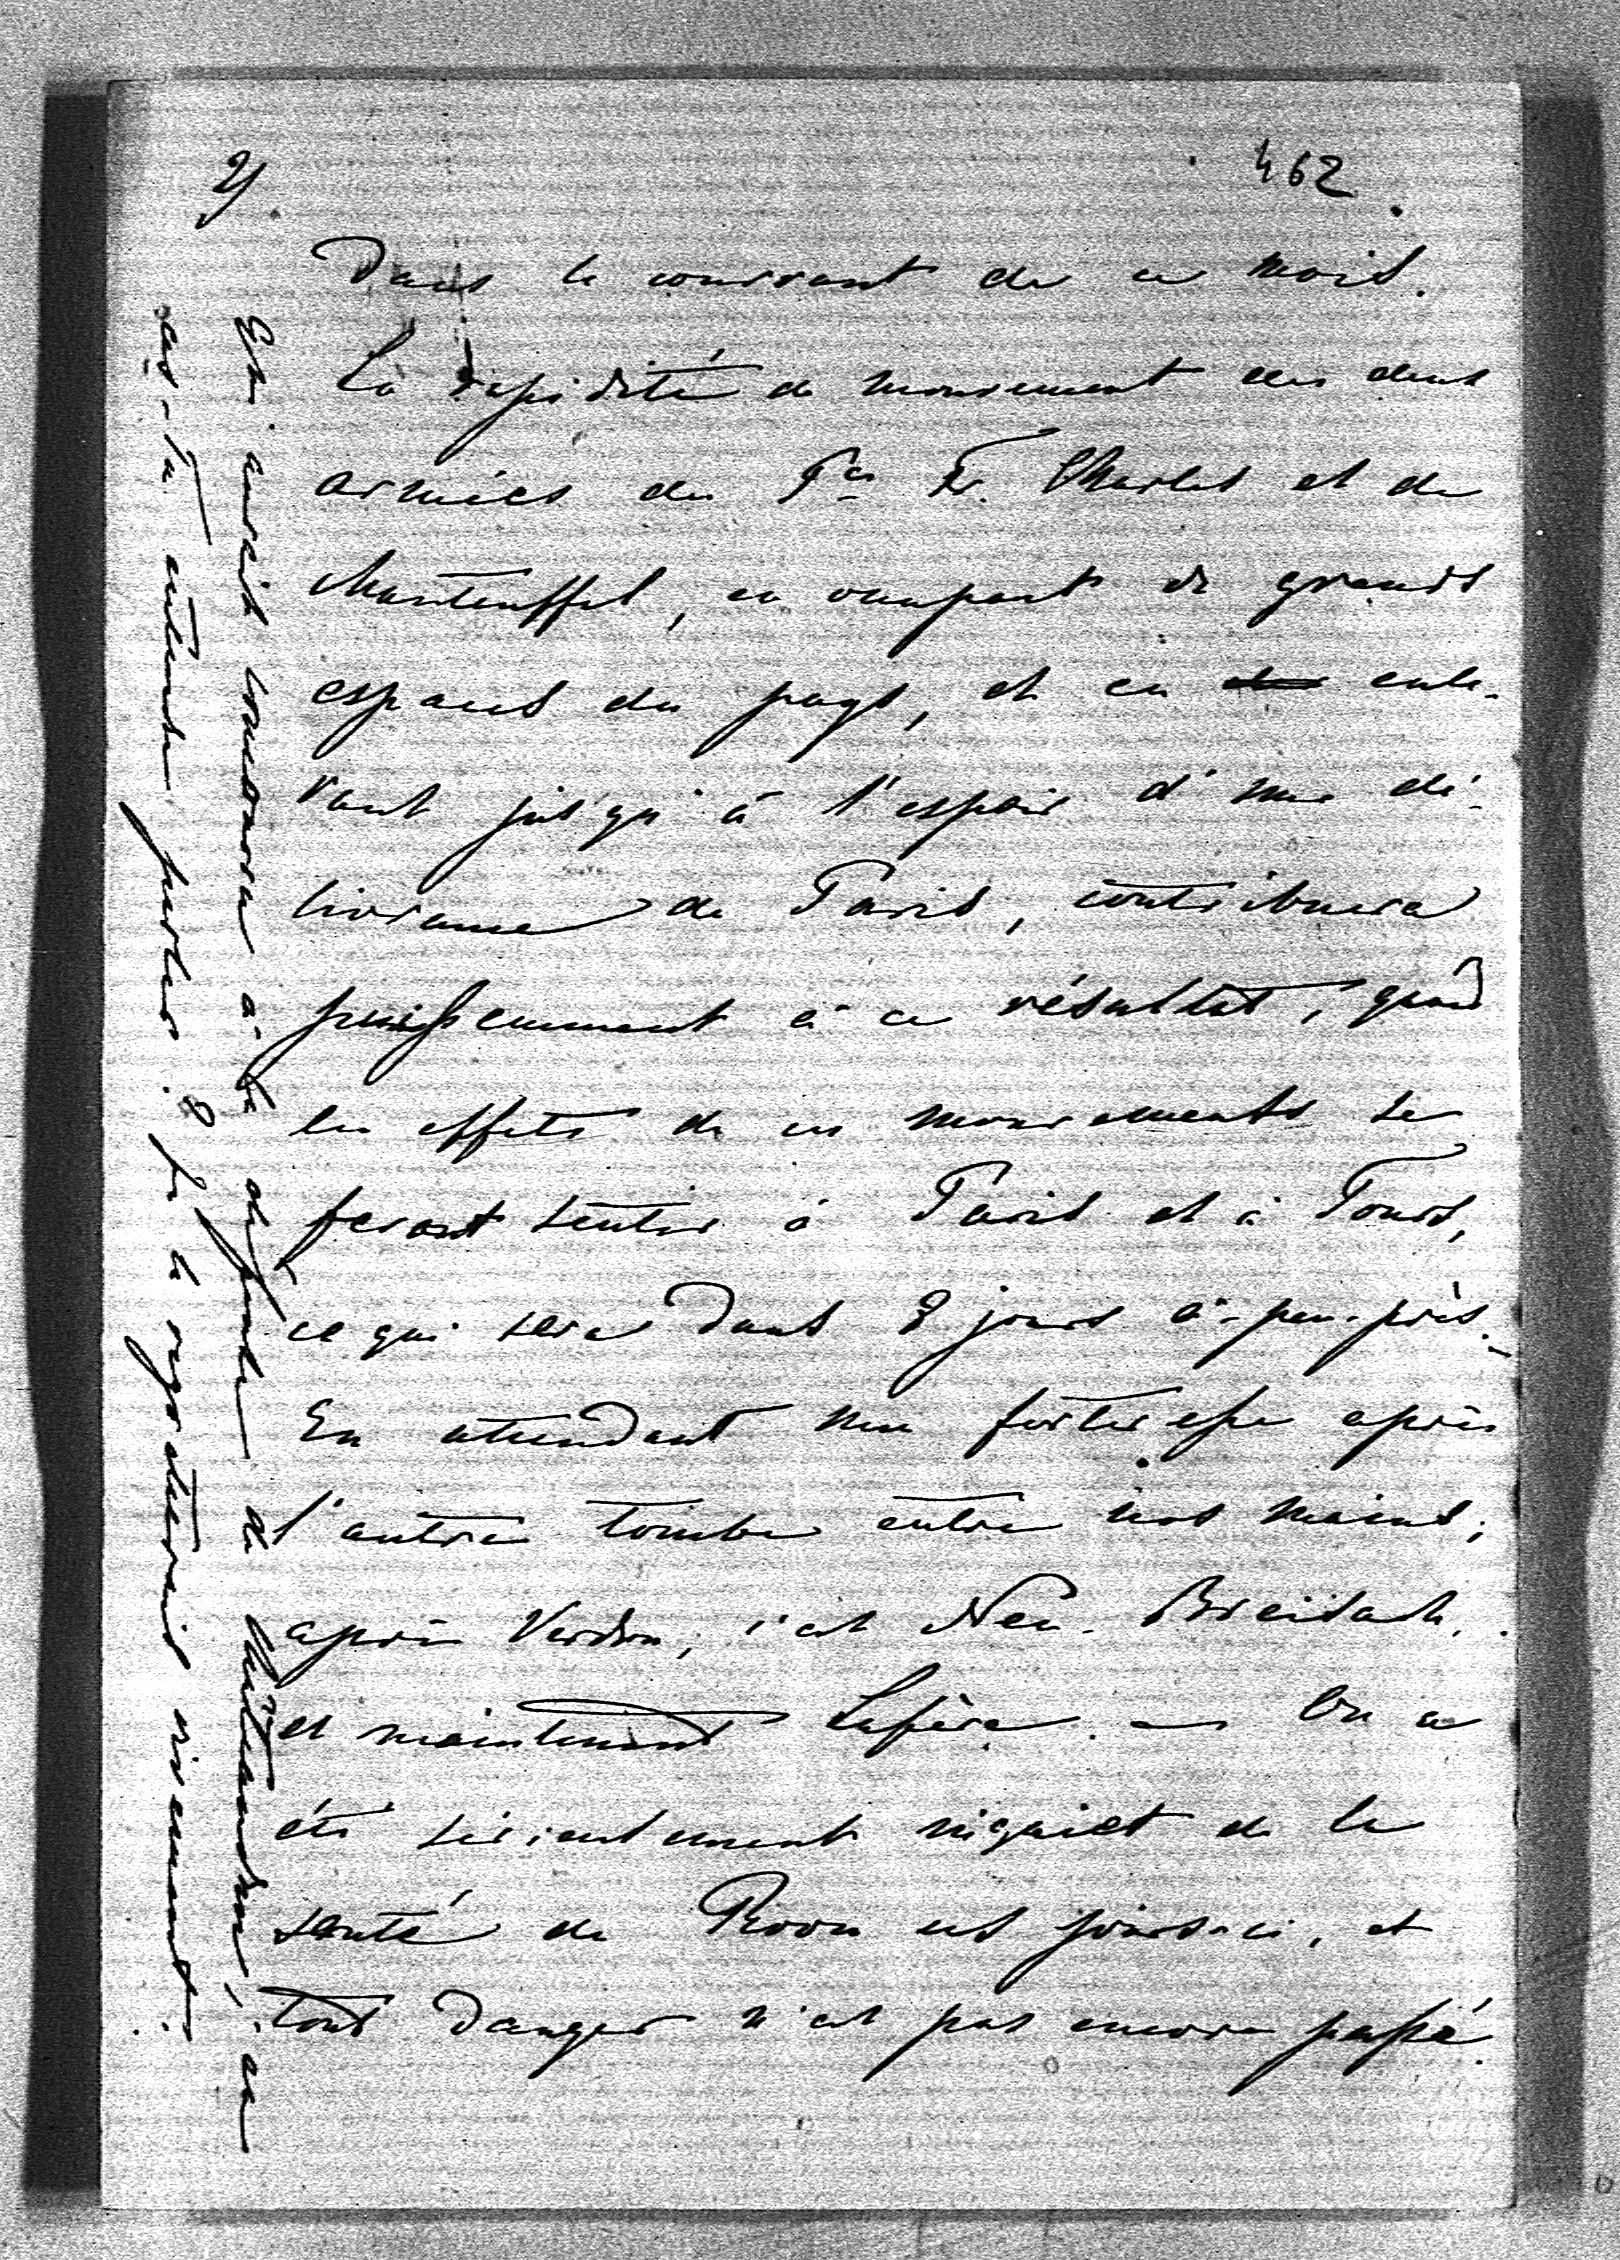 2/
462
Dans le courrant de ce mois.
La rapidité de mouvement des deux
armées du Pce Fr. Charles et de
Manteuffel, en occupant de grands
espaces du pays, et en enle-
vant jusqu'à l'espoir d'une dé-
livrance de Paris, contribuera
puissemment à ce résultat, quand
les effets de ces mouvements se
feront sentir à Paris et à Tours,
ce qui sera dans 8 jours à-peu-près.
En attendant une forteresse après
l'autre tombe entre nos mains;
après Verdun, c'est Neu-Breisach,
et maintenant Lafère. — On a
été sérieusement inquiet de la
santé de Roon ces jours-ci, et
tout danger n'est pas encore passé.
qu'il y aurait à la de
as-tu entendu parler? Je le regretterais vivement.